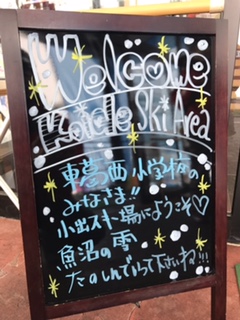 Welcome
Koide Ski Area
東葛西小学校の
みなさま!!
小出スキー場にようこそ♡
魚沼の雪
たのしんでいって下さいね!!!